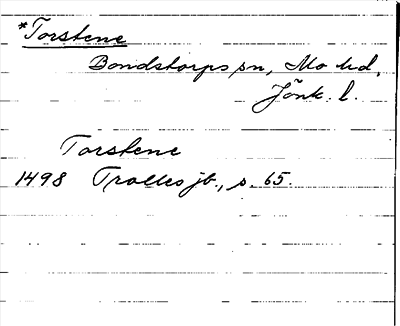 *Torstene
Bondstorps sn, Mo hd,
Jönk. l.
Torstene
1498 Trolles jb., s. 65.